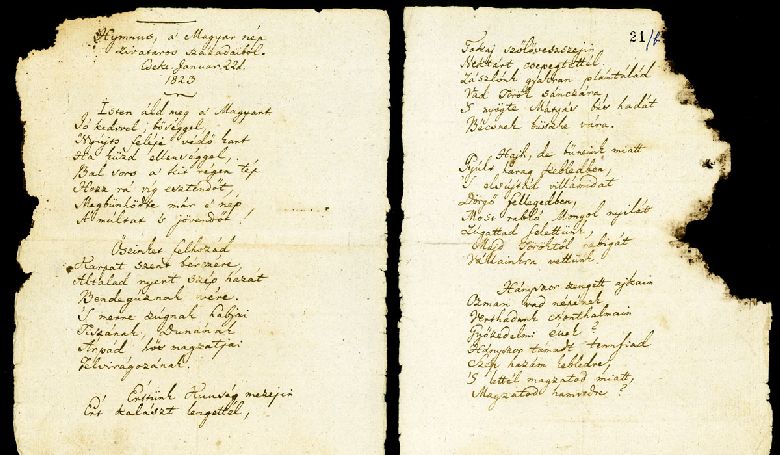 Hymnus, a' Magyar nép
zivataros századaiból.
Cseke. Januar. 22d.
1823
Isten áldd meg a' Magyart
Jó kedvvel, bőséggel,
Nyújts feléje védő kart
Ha küzd ellenséggel,
Bal sors a' kit régen tép
Hozz rá víg esztendőt,
Megbűnhődte már e' nép
A' múltat 's jövendőt!
Őseinket felhozád
Kárpát szent bérczére,
Általad nyert szép hazát
Bendegúznak vére.
'S merre zúgnak habjai
Tiszának, Dunának
Árpád hős magzatjai
Felvirágozának.
Értünk Kunság mezején
Ért kalászt lengettél,
21/
Tokaj szőlővesszejin
Nektárt csepegtettél.
Zászlónk gyakran plántálád
Vad Török sánczára
'S nyögte Mátyás bús hadát
Bécsnek büszke vára.
Hajh, de bűneink miatt
Gyúlt harag kebledben,
'S elsújtád villámidat
Dörgő fellegedben,
Most rabló Mongol nyilát
Zúgattad felettünk,
Majd Töröktől rabigát
Vállainkra vettünk.
Hányszor zengett ajkain
Ozman vad népének
Vert hadunk csonthalmain
Győzedelmi ének?
Hányszor támadt tennfiad
Szép hazám kebledre,
'S lettél magzatod miatt,
Magzatod hamvedre?